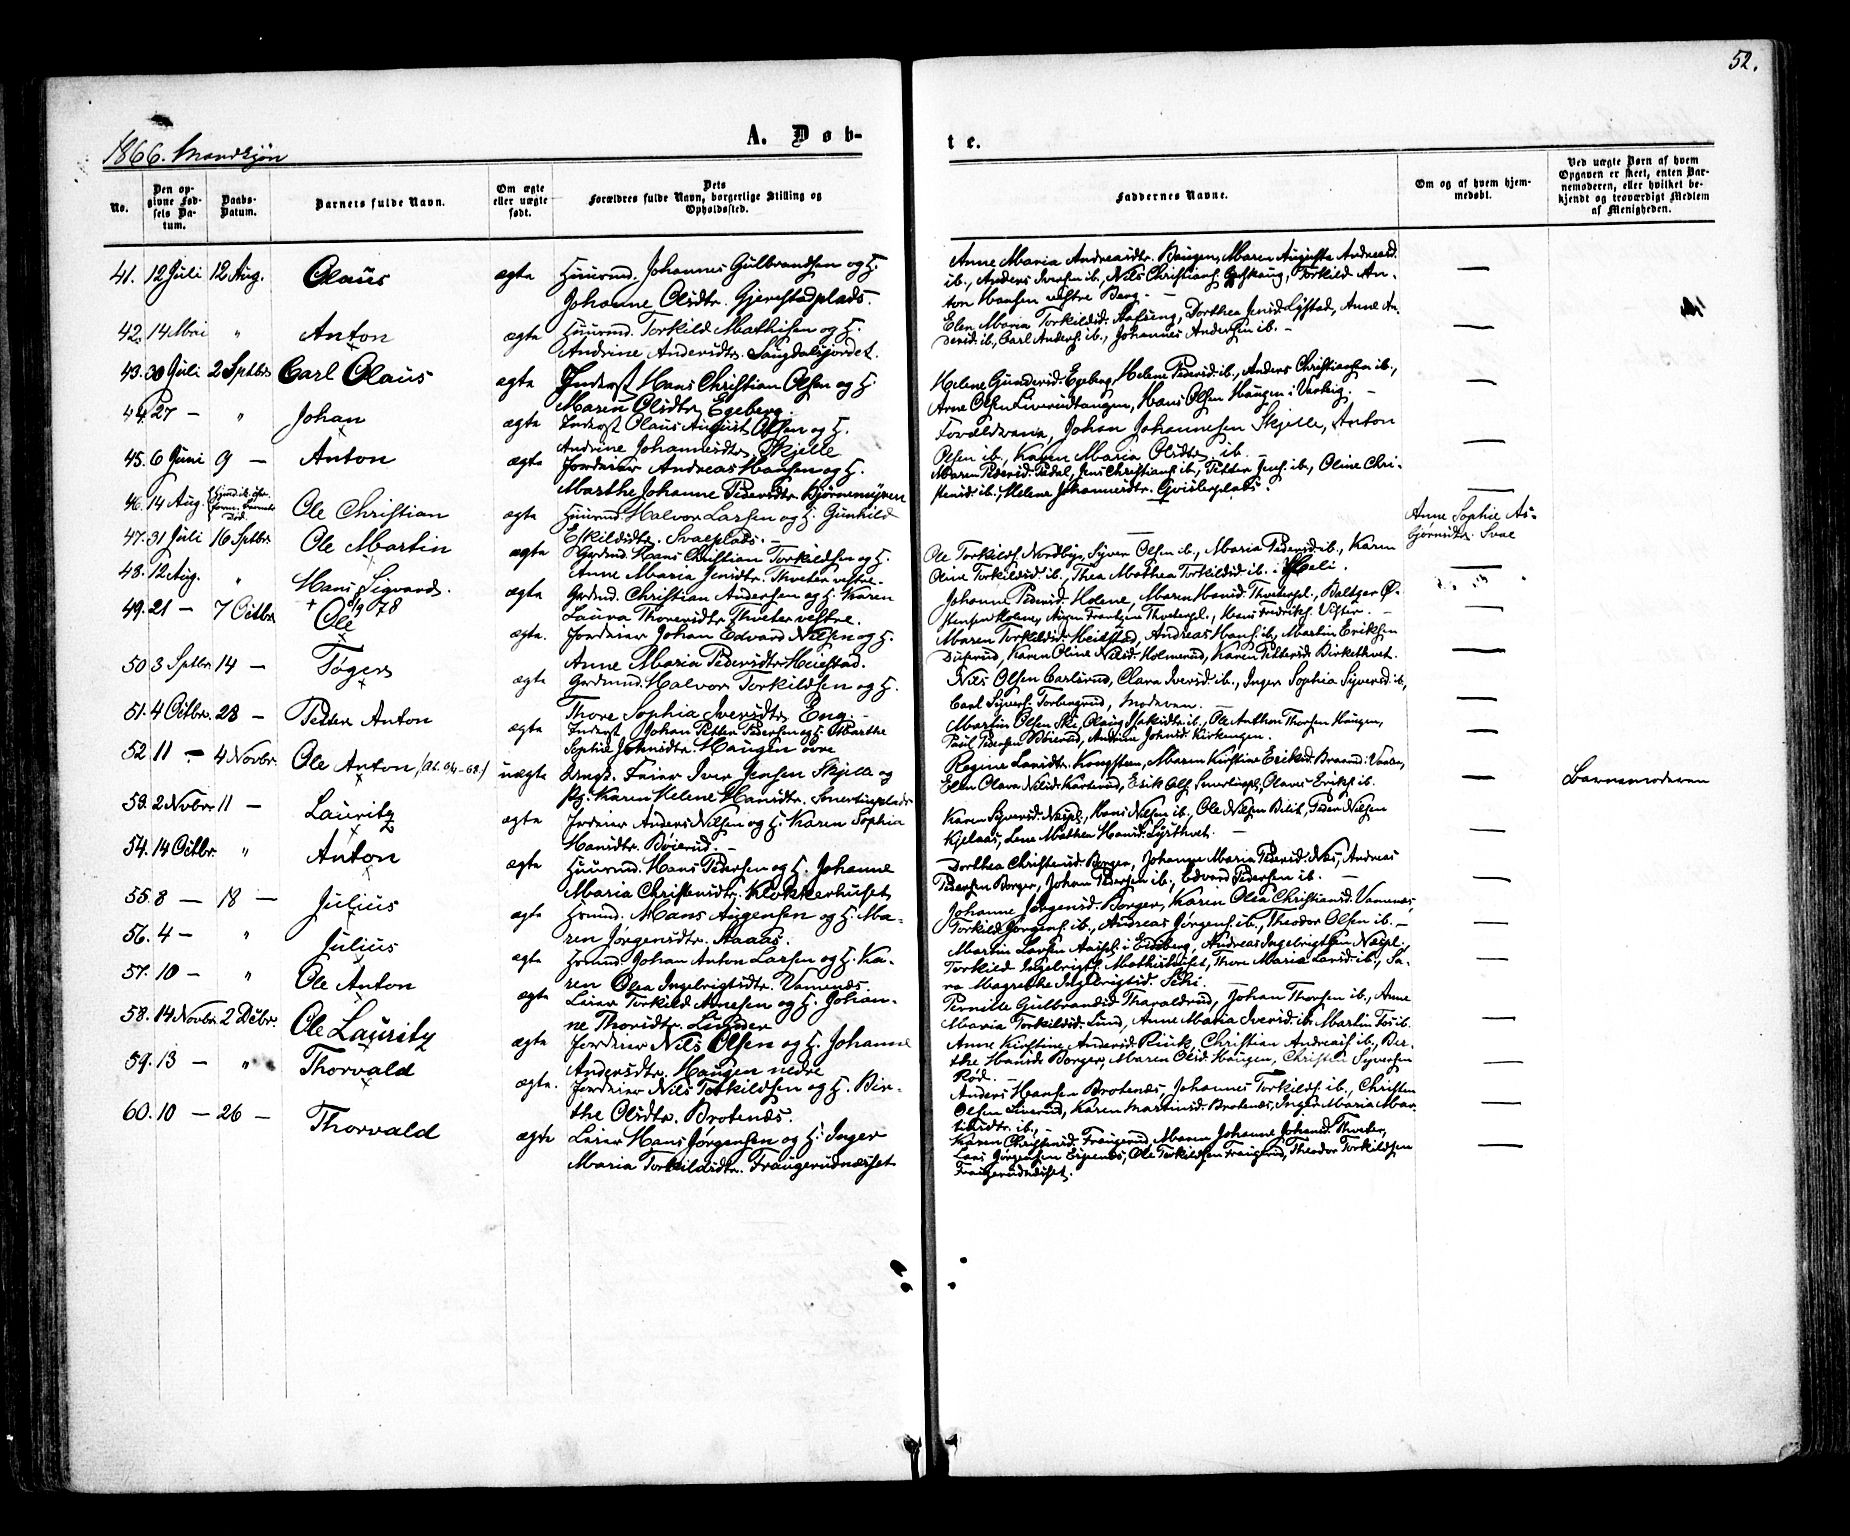 52.
1866. Mandkjøn
A. Døb-
te.
No.
Den op-
givne Fød-
sels Da-
tum.
Daabs-
Datum.
Barnets fulde Navn.
Om ægte
eller uægte
født.
Dets
Forældres fulde Navn, borgerlige Stilling og
Opholdssted.
Faddernes Navne.
Om og af hvem hjem-
medøbt.
Ved uægte Børn af hvem
Opgaven er skeet, enten Bar-
nemoderen, eller hvilket be-
kjendt og troværdigt Medlem
af Menigheden.
41. 12 Juli 12 Aug. Olaus ægte Huusmd. Johannes Gulbrandsen og H.
Johanne Olsdtr. Gjerestadplads.
Anne Maria Andreasdtr. Haugen, Maren Augusta Andreasd.
ib., Anders Iversen ib., Nils Christians. Torkild An-
ton Hansen vestre Berg. —
42. 14 Mai " Anton ægte Huusmd. Torkild Mathisen og H.
Andrine Andersdtr. Saugdalsjordet.
Elen Maria Torkildsd. Dorthea Jensd. Anne An-
dersd. ib., Carl Anders. ib., Johannes Andersen ib. —
43. 30 Juli 2 Sptbr. Carl Olaus ægte Inderst Hans Christian Olsen og H.
Maren Olsdtr. Egeberg.
Helene Gundersd. Egeberg, Helene Pedersd. ib., Anders Christiansen ib.,
Arne Olsen Hans Olsen Haugen i —
44. 27 — " Johan ægte Inderst Olaus August Olsen og H.
Andrine Johannesdtr. Skjelle
Forældrene, Johan Johannesen Skjelle, Anton
Olsen ib., Karen Maria Olsdtr. ib.
45. 6 Juni 9 — Anton ægte Jordeier Andreas Hansen og H.
Marthe Johanne Pedersdtr. Bjørnemyren
Maren Pedersd. Jens Christians. ib., Petter Jens. ib., Oline Chri-
stensd. ib., Helene Johannesdtr.
46. 14 Aug. Ole Christian ægte Huusmd. Halvor Larsen og H. Gunhild
Eskildsdtr. Svaeplads. —
Anne Sophie As-
bjørnsdtr. Svae
47. 31 Juli 16 Sptbr. Ole Martin ægte Grdmd. Hans Christian Torkildsen og H.
Anne Maria Jensdtr. Thveter vestre.
Ole Torkilds. Nordby, Syver Olsen ib., Maria Pedersd. ib., Karen
Oline Torkildsd. ib., Thea Mathea Torkildsd. ib. i Heli.
48. 12 Aug. " Hans Sigvard. ægte Grdmd. Christian Andersen og H. Karen
Laura Thoresdtr. Thveter vestre.
Johanne Pedersd. Holene, Maren Hansd. Baltzer Ø-
stensen Holene,
49. 21 — 7 Octbr. Ole ægte. Jordeier Johan Edvard Nilsen og H.
Anne Maria Pedersdtr. Heiestad.
Maren Torkildsd. Heiestad, Andreas Hans. ib., Martin Eriksen
Karen Oline Nilsd. Holmerud, Karen Pettersd. Birkethvet.
50 3 Sptbr. 14 — Tøger ægte Grdmd. Halvor Torkildsen og H.
Thore Sophia Iversdtr. Eng. —
Nils Olsen Carlsrud, Clara Iversd. ib., Inger Sophia Syversd. ib.,
Carl Syvers. Torbergrud, Moderen. —
51. 4 Octbr. 28 — Peder Anton ægte Inderst Johan Petter Pedersen og H. Marthe
Sophie Johnsdtr. Haugen øvre
Martin Olsen Ski, Olaug Isaksdtr. ib., Ole Anthon Thorsen Haugen,
Paul Pedersen Bøierud, Andrine Johnsd. Kirkengen.
52 11 — 4 Novbr. Ole Anton uægte Ungk. Iver Jensen Skjelle og
Pg. Karen Helene Hansdtr. Smertuplads
Regine Larsdtr. Kongsteen, Maren Kirstine Eriksd.
Elen Olava Nilsd. Erik Ols. Olaves Eriks. ib.
Barnemoderen
53. 2 Nvbr. 11 — Lauritz ægte Jordeier Anders Nilsen og H. Karen Sophia
Hansdtr. Bøierud. —
Karen Syversd. Hans Nilsen ib., Ole Nilsen Peder Nilsen
Kjelaas, Lene Mathea Hansd. —
54. 14 Octbr. " Anton ægte Huusmd. Hans Pedersen og H. Johanne
Maria Christensdtr. Klokkerhuset
Dorthea Christensd. Borger, Johanne Maria Pedersd. Næs, Andreas
Pedersen Borger, Johan Pedersen ib., Edvard Pedersen ib. —
55. 8 — 18 — Julius ægte Hsmnd. Hans Augensen og H. Ma-
ren Jørgensdtr. Aaaas.
Johanne Jørgensd. Borger, Karen Olea Christiansd. Vamnæs,
Torkild Jørgens. ib., Andreas Jørgens. ib., Theodor Olsen ib. —
56. 4 — " Julius ægte Hsmnd Johan Anton Larsen og H. Ka-
ren Olea Ingebrigtsdtr. Vamnæs.
Martin Larsen i Eidsberg, Andreas Ingebrigtsen
Torkild Ingebrigts. Mathishuset, Thore Maria Larsd. ib., Sa-
ra Magrethe Ingebrigtsd.
57. 10 — " Ole Anton ægte Leier Torkild Arnesen og H. Johan-
ne Thorsdtr. Lunder
Pernille Gulbrandsd. Tharaldrud, Johan Thorsen ib., Anne
Maria Torkildsd. Lund, Anne Maria Iversd. ib.
58. 14 Novbr. 2 Decbr. Ole Lauritz ægte Jordeier Nils Olsen og H. Johanne
Andersdtr. Haugen nedre
Anne Kirstine Andersd. Christian Andreas. ib., Ber-
the Hansd. Borger, Maren Olsd. Haugen, Christen Syversen
Rød.
59. 13 — " Thorvald ægte. Jordeier Nils Torkildsen og H. Bir-
the Olsdtr. Brotenæs.
Anders Hansen Brotenæs, Johannes Torkilds. ib., Christen
Olsen Liverud, Karen Martinsd. Brotenæs, Inger Maria Mar-
tinsdtr. ib., —
60. 10 — 26 — Thorvald ægte Leier Hans Jørgensen og H. Inger
Maria Torkildsdtr. Fraugerudnæsset
Karen Christensd. Fraugerud, Maren Johanne Johansd. Thveter,
Lars Jørgensen Ole Torkildsen Fraugerud, Theodor Torkildsen
Fraugerudnæsset.